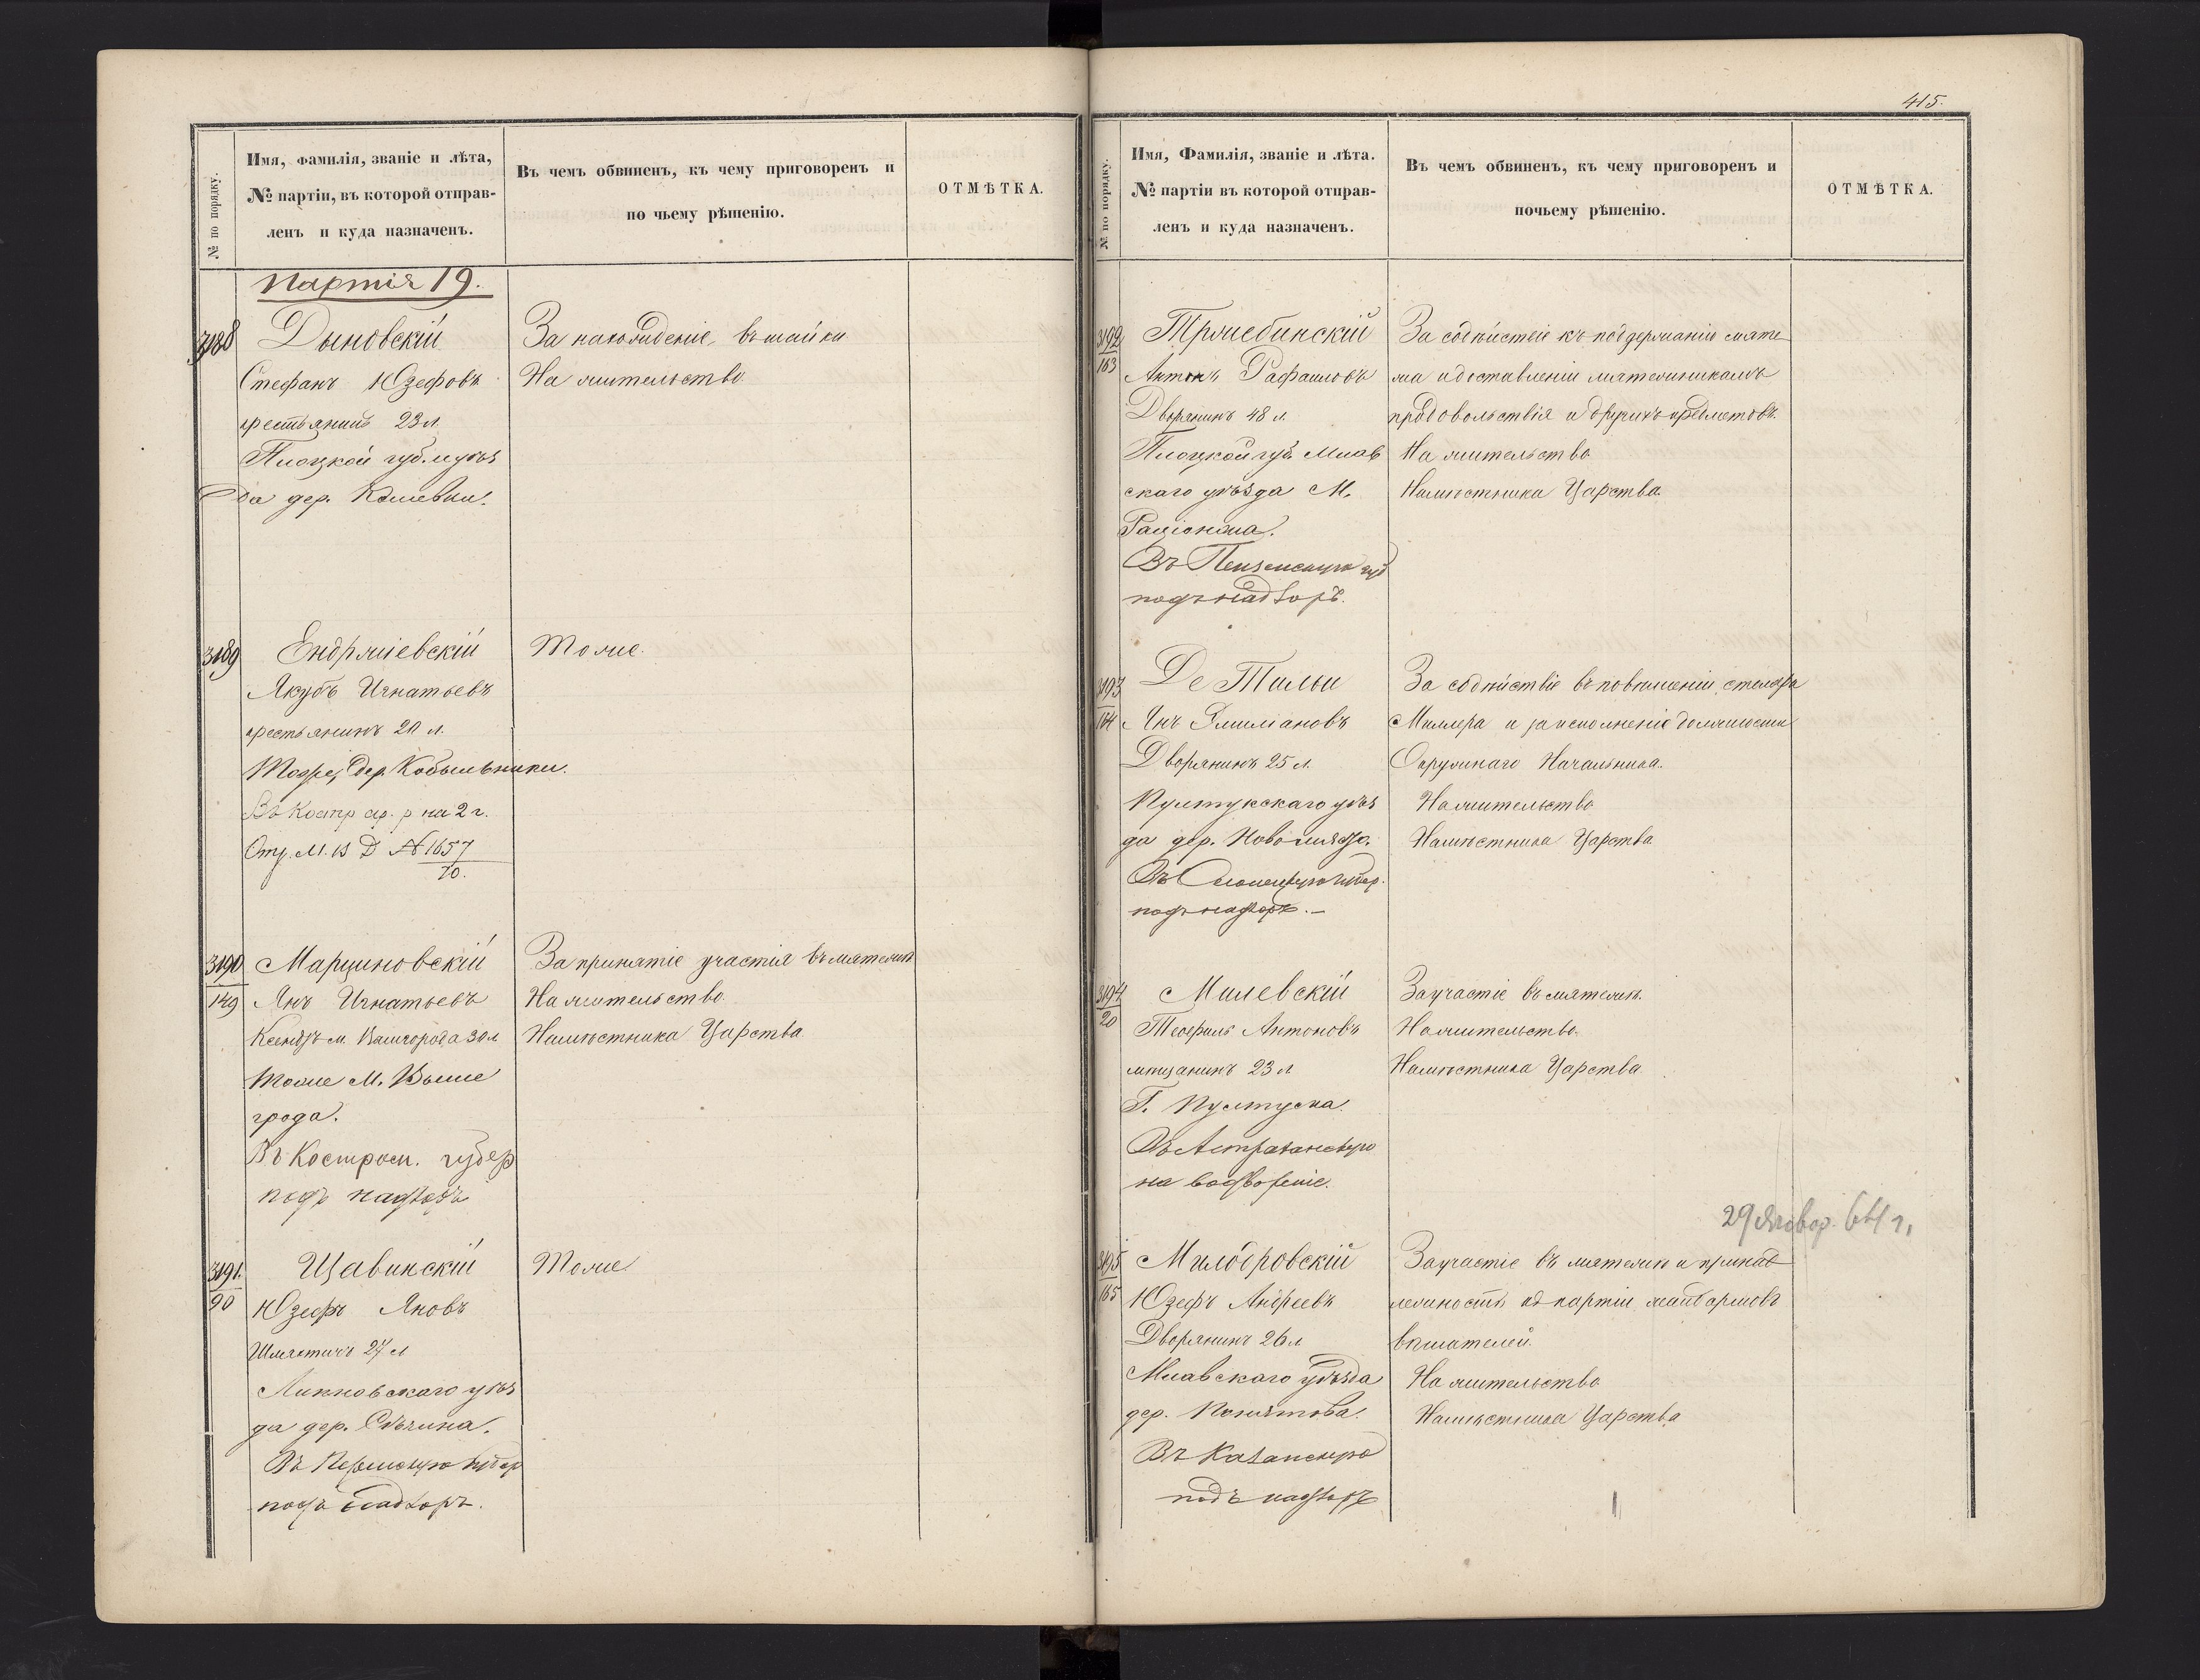 № по порядку.
Имя, фамилія, званіе и лѣта,
№ партіи, въ которой отправ-
ленъ и куда назначенъ.
Въ чемъ обвиненъ, къ чему приговоренъ и
по чьему рѣшенію.
ОТМѢТКА.
Партія 19.
3188
Дыновскій
Стефанъ Юзефовъ
крестьянинъ 23 л.
Плоцкой губ. и уѣз
да дер.
За нахожденіе въ шайки
На жительство.
3189
Ендржіевскій
Якубъ Игнатьевъ
крестьянинъ 20 л.
Тожре, дер. Кобыльники.
Въ Костр ар. р на 2 г.
Отр. М. В Д № 1657
70.
Тоже.
3190
149
Марциновскій
Янъ Игнатьевъ
Ксендзъ м. Вышгорода 30 л
Тоже М. Выше
грода.
Въ Костром. губер
подъ надзоръ
За принятіе участія въ мятежѣ
На жительство.
Намѣстника Царства.
3191.
90
Щавинскій
Юзефъ Яновъ
Шляхтичъ 27 л
Липновскаго уѣз
да дер. Сѣчина.
Въ Пермскую губер
подъ надзоръ.
Тоже.
415.
№ по порядку.
Имя, Фамилія, званіе и лѣта.
№ партіи въ которой отправ-
ленъ и куда назначенъ.
Въ чемъ обвиненъ, къ чему приговоренъ и
почьему рѣшенію.
ОТМѢТКА.
3192
163
Тржебинскій
Антонъ Рафаиловъ
Дворянинъ 48 л.
Плоцкой губ. Млав
скаго уѣзда М.
Раціонжа.
Въ Пензенскую губ
подъ надзоръ.
За содѣйствіе къ поддержанію мяте
жа и доставленіи мятежникамъ
продовольствія и другихъ предметовъ.
На жительство
Намѣстника Царства.
3193
164
Де Тилли
Янъ Эмиліановъ
Дворянинъ 25 л.
Пултускаго уѣз
да дер.
Въ губер.
подъ надзоръ.–
За содѣйствіе въ повѣшеніи столяра
Миллера и за исполненіе должности
Окружнаго Начальника.
На жительство
Намѣстника Царства
3194
20
Милевскій
Теофиль Антоновъ
мѣщанинъ 23 л
Г. Пултуска.
Въ Астраханскую
на водвореніе.
За участіе въ мятежѣ.
На жительство.
Намѣстника Царства.
29 Январ. 64 г.
3195
165
Милобровскій
Юзефъ Андреевъ
Дворянинъ 26 л
Млавскаго уѣзда
дер. Понятова.
Въ Казанскую
подъ надзоръ
За участіе въ мятежѣ и принад
лежность къ партіи жандармовъ
вѣшателей.
На жительство
Намѣстника Царства